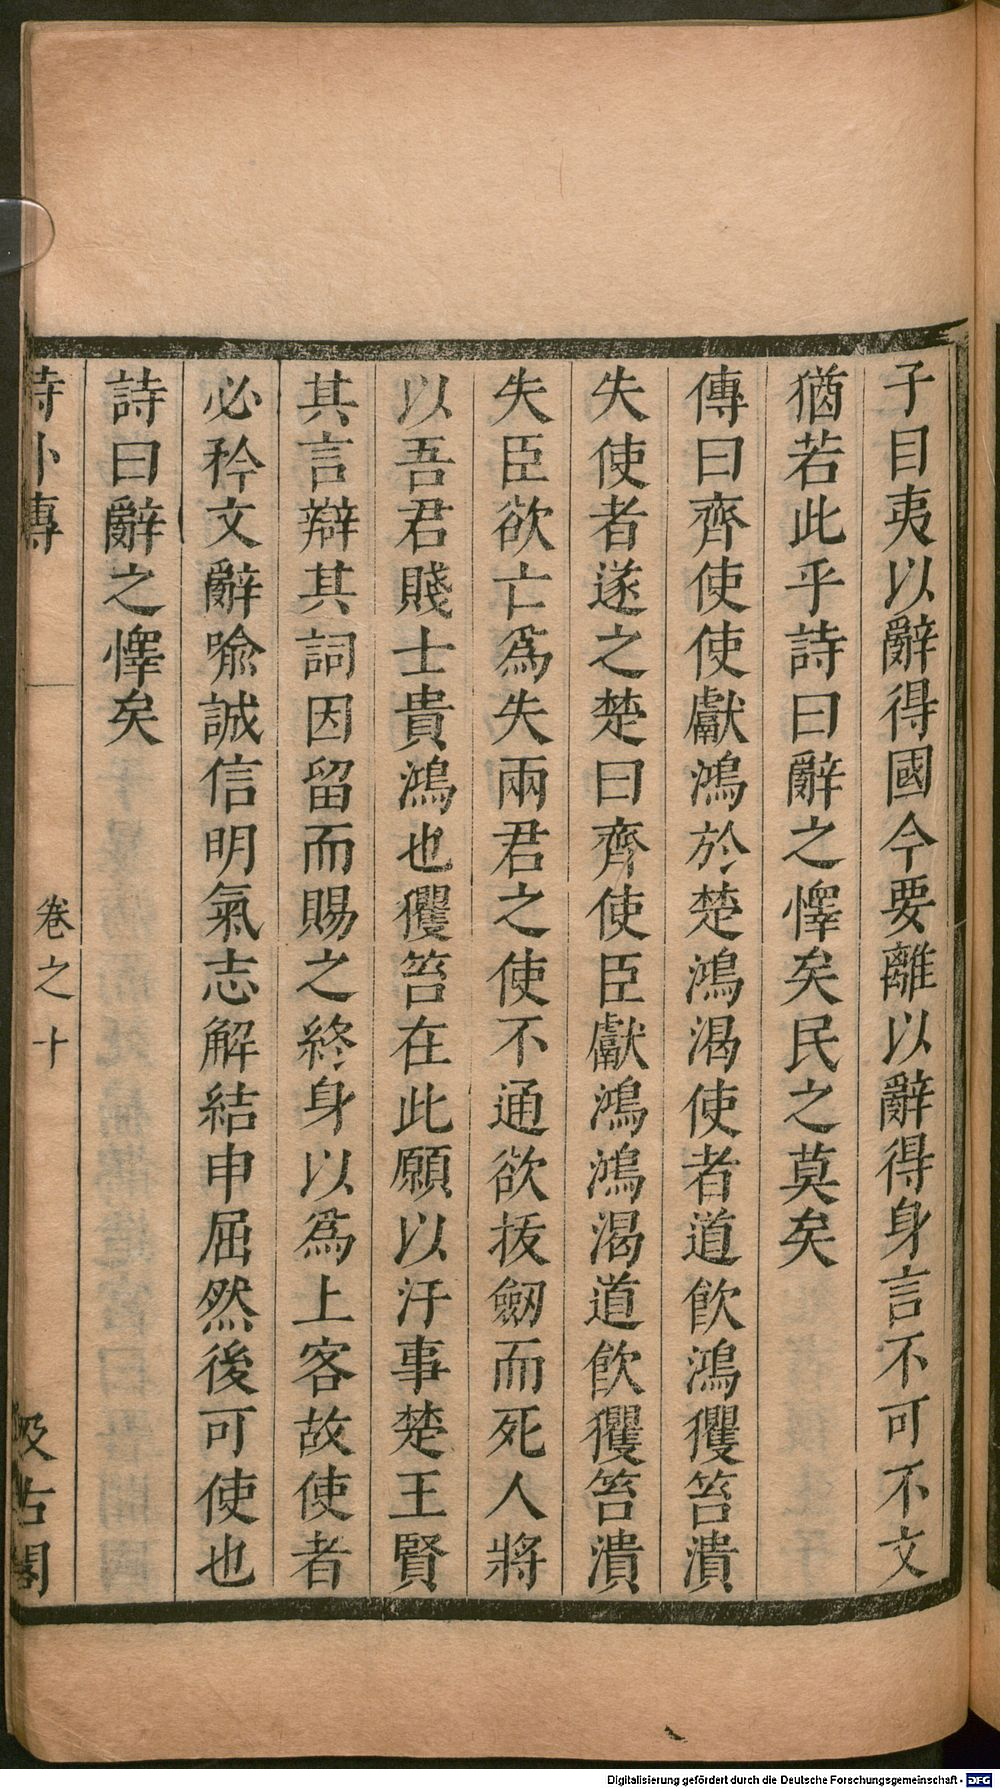 子目夷以辭得國今要離以辭得身言不可不文
猶若此乎詩曰辭之懌矣民之莫矣
傳曰齊使使獻鴻於楚鴻渴使者道飲鴻玃笞潰
失使者遂之楚曰齊使臣獻鴻鴻渴道飲玃笞潰
失臣欲亡為失兩君之使不通欲拔劔而死人將
以吾君賤士貴鴻也玃笞在此願以汙事楚王賢
其言辯其詞因留而賜之終身以為上客故使者
必矜文辭喻誠信明氣志解結申屈然後可使也
詩曰辭之懌矣
詩外傳
卷之十
汲古閣
Digitalisierung gefördert durch die Deutsche Forschungsgemeinschaft - DFG